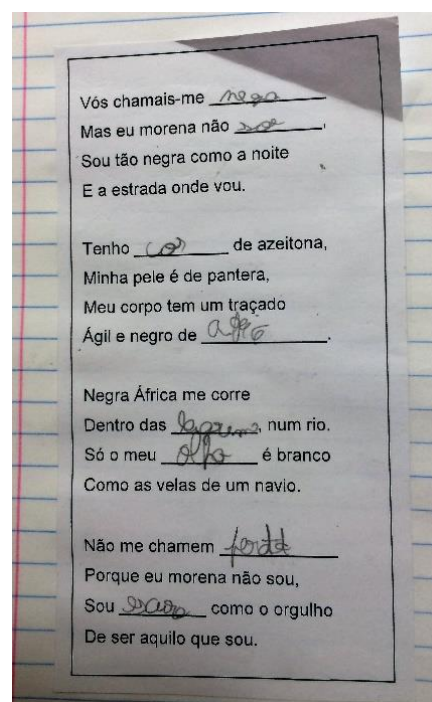 Vós chamais-me nega
Mas eu morena não soe,
Sou tão negra como a noite
E a estrada onde vou.
Tenho cor de azeitona,
Minha pele é de pantera,
Meu corpo tem um traçado
Ágil e negro de
Negra África me corre
Dentro das, num rio.
Só o meu olho é branco
Como as velas de um navio.
Não me chamem
Porque eu morena não sou,
Sou como o orgulho
De ser aquilo que sou.